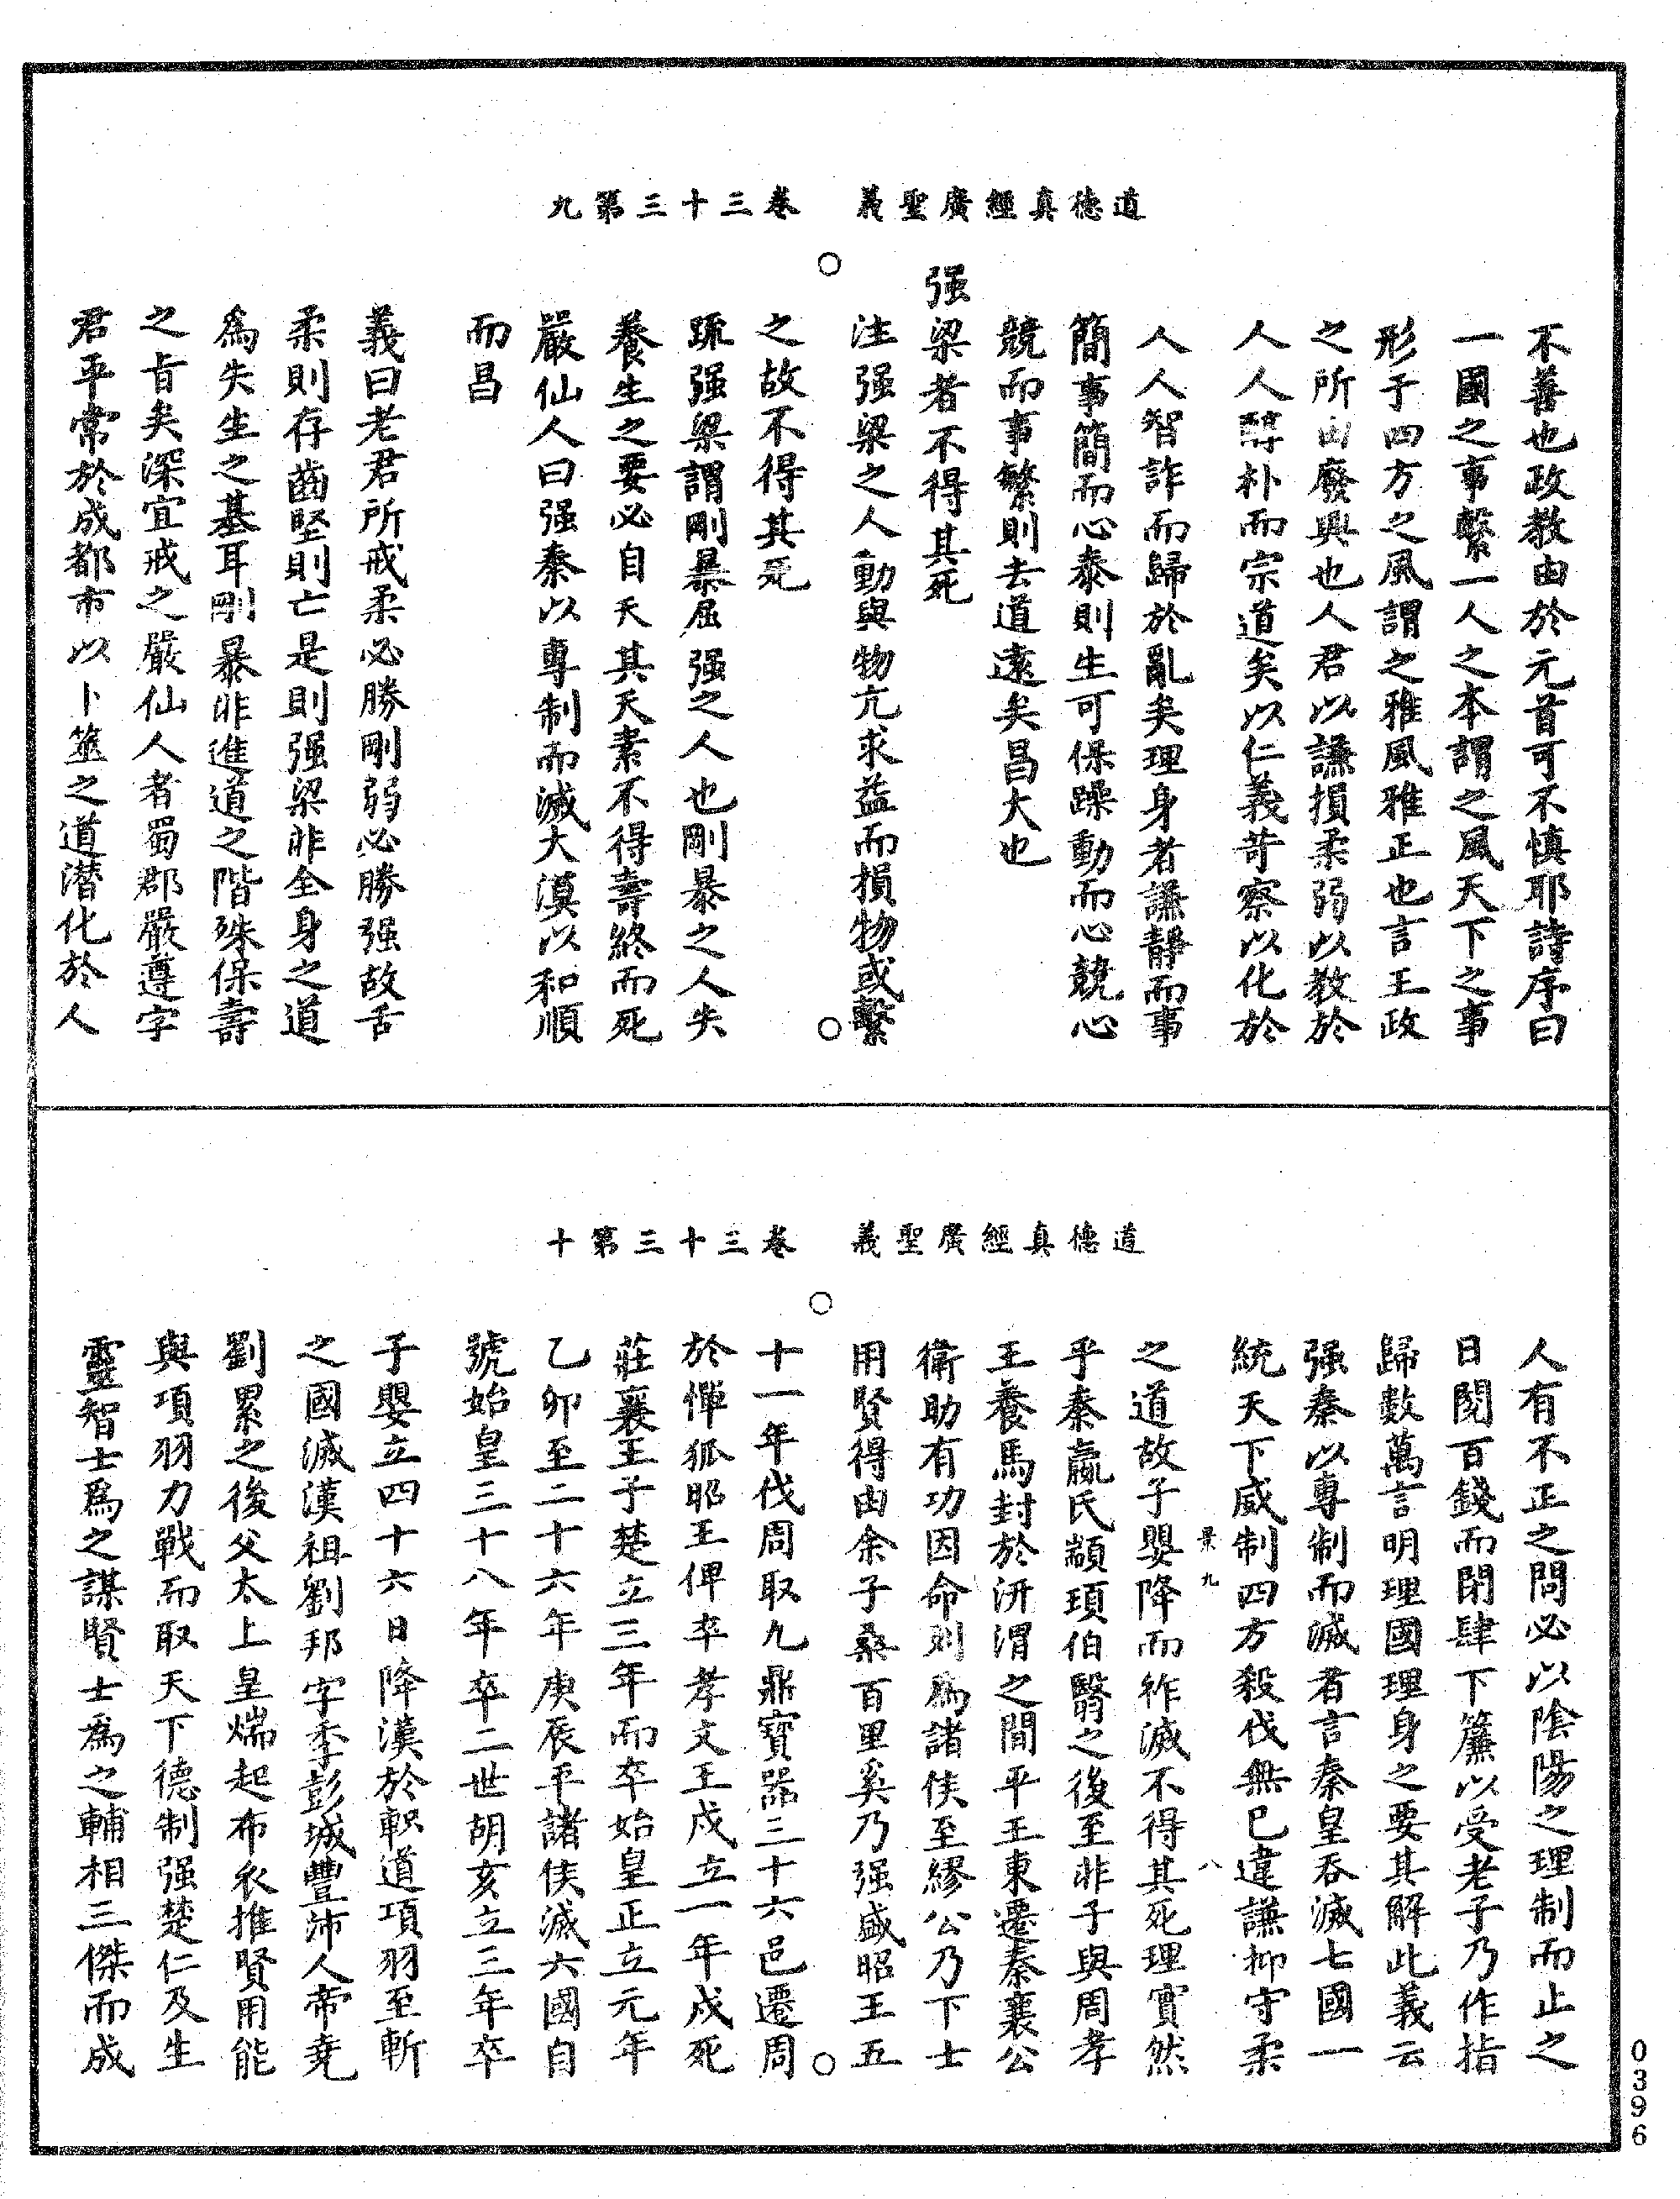 道德真經廣聖義　卷三十三第九
不善也政教由於元首可不慎耶詩序曰
一國之事繫一人之本謂之風天下之事
形于四方之風謂之雅風雅正也言王政
之所由廢興也人君以謙損柔弱以教於
人人醇朴而宗道矣以仁義苛察以化於
人人智詐而歸於亂矣理身者謙靜而事
簡事簡而心泰則生可保躁動而心競心
競而事繁則去道遠矣昌大也
强梁者不得其死
注强梁之人動與物亢求益而損物或繫
之故不得其死
疏强梁謂剛暴屈强之人也剛暴之人失
養生之要必自夭其天素不得壽終而死
嚴仙人曰强秦以專制而滅大漢以和順
而昌
義曰老君所戒柔必勝剛弱必勝强故舌
柔則存齒堅則亡是則强梁非全身之道
為失生之基耳剛暴非進道之階殊保壽
之旨矣深宜戒之嚴仙人者蜀郡嚴遵字
君平常於成都市以卜筮之道潜化於人
道德真經廣聖義　卷三十三第十
人有不正之問必以陰陽之理制而止之
日閱百錢而閉肆下簾以受老子乃作指
歸數萬言明理國理身之要其解此義云
强秦以專制而滅者言秦皇吞滅七國一
統天下威制四方殺伐無已違謙抑守柔
景九　八
之道故子嬰降而祚滅不得其死理實然
乎秦嬴氏顓頊伯翳之後至非子與周孝
王養馬封於汧渭之間平王東遷秦襄公
衛助有功因命列為諸侯至繆公乃下士
用賢得由余子桑百里奚乃强盛昭王五
十一年伐周取九鼎寶器三十六邑遷周
於憚狐昭王俾卒孝文王戍立一年戍死
莊襄王子楚立三年而卒始皇正立元年
乙卯至二十六年庚辰平諸侯滅六國自
號始皇三十八年卒二世胡亥立三年卒
子嬰立四十六日降漢於軹道項羽至斬
之國滅漢祖劉邦字季彭城豐沛人帝堯
劉累之後父太上皇煓起布衣推賢用能
與項羽力戰而取天下德制强楚仁及生
靈智士爲之謀賢士為之輔相三傑而成
0396